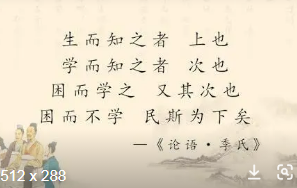 生而知之者 上也
学而知之者 次也
困而学之 又其次也
困而不学 民斯为下矣
—《论语·季氏》
512 x 288